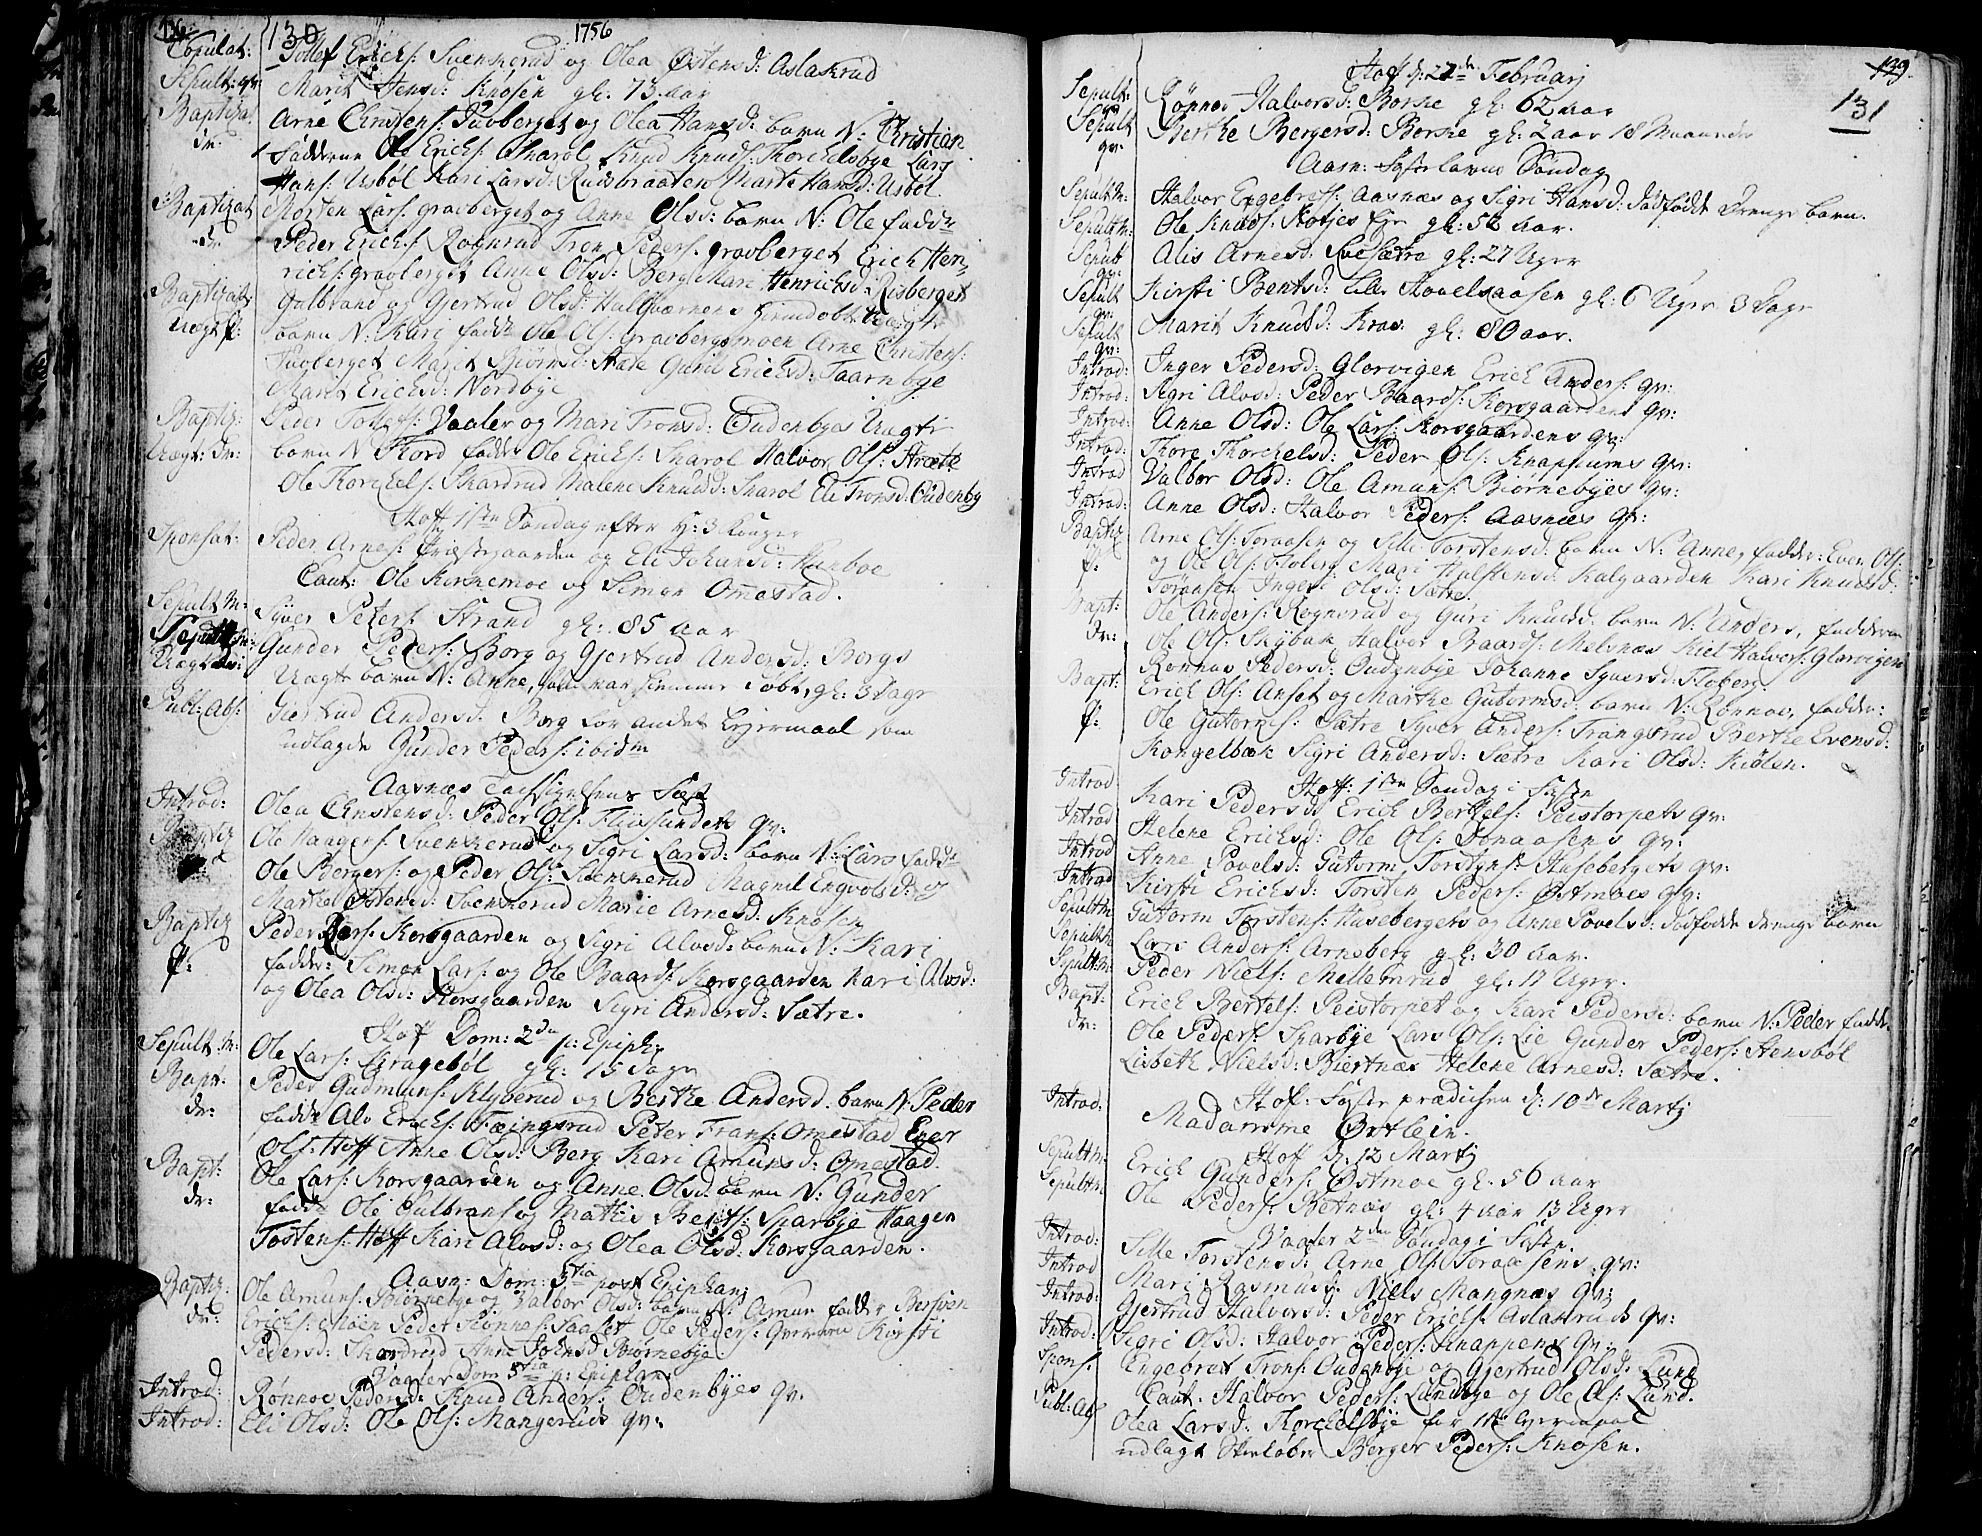 130
1756
Copulat: Tollef Erichs: Svenkerud og Olea Østensd: Aslakrud
Sepult: qv: Marit Hensd: Knosen gl: 73 aar
Baptizat dr: Arne Christens: Juvberget og Olea Hansd: barn N: Christian
fadderne Ole Erichs: Skarol Knud Knuds: Thorckelsbye Lars
Hans: Usböl Kari Larsd: Rudsbraaten Marte Hansd: Usböl
Baptizat dr: Morten Lars: gravberget og Anne Olsd: barn N: Ole fadd:
Peder Erichs: Rognrud Tron Peders: gravberget Erich Hen-
richs: gravberget Anne Olsd: Berg Mari Henrichsd: Risberget
Baptizat Uægt f: Gulbrand og Gjertrud Olsd:
barn N: Kari fadd: Ole Ols: Gravbergsmoen Arne Christens:
Juvberget Marit Biörnsd: Guril Erichsd: Taarnbye
Marit Erichsd: Nordbye
Baptiz: Uægt: dr: Peder Vaaler og Mari Tronsd: Oudenbyes Uægte
barn N: Thord fadd: Ole Erichs: Skarol Halvor Ols: Stræte
Ole Thorchels: Skardrud Malene Knudsd: Skarol Eli Tronsd: Oudenby
Hoff 1ste Söndag efter H: 3 Konger
Sponsat: Peder Arnes: Præstegaarden og Eli Johansd: Kunboe
Caut: Ole Kornemoe og Simon Omestad.
Sepult m: Syver Peters: Strand gl: 85 aar
Uægt: Gunder Peders: Borg og Gjertrud Andersd: Bergs
Uægte barn N: Anne, som var hiemme döbt, gl: 3 Dage
Publ: Abs: Giertrud Andersd: Borg for andet Leyermaal som
udlagde Gunder Peders: ibidm
Aasnæs Tacksigelsens Fest
Introd: Olea Christensd: Peder Ols: Flisesundets qv:
Baptiz Ole Haagens: Svenkerud og Sigri Larsd: barn N: Lars fadd:
Ole Bergers: og Peder Ols: Svenkerud Magnil Engvolsd: og
Marthe Østensd: Svenkerud Marie Arnesd: Knosen
Baptiz f: Peder Korsgaarden og Sigri Alvsd: barn N: Kari
fadde: Simon Lars: og Ole Baards: Korsgaarden Kari Alvsd:
og Olea Olsd: Korsgaarden Sigri Andersd: Sætre.
Hoff Dom: 2da p: Epiph:
Sepult m: Ole Lars: Grageböl gl: 15 Dage
Bapt: dr: Peder Gudmuns: Klyberud og Berthe Andersd: barn N: Peder
fadd: Alv Erichs: Frangsrud Peter Frans: Omestad Ener
Ols: Hoff Anne Olsd: Berg Kari Amunsd: Omestad.
Bapt: dr: Ole Lars: Korsgaarden og Anne Olsd: barn N: Gunder
fadd: Ole Gulbrans: og Mathis Bents: Sparbye Haagen
Tostens: Hoff Kari Alvsd: og Olea Olsd: Korsgaarden.
Aasn: Dom: 3tia post Epiphan:
Baptiz: dr: Ole Amuns: Biörnebye og Valbor Olsd: barn N: Amun fadder Bersven
Erichs: Moen Peder Rönnes: Saalet Ole Peders: Kirsti
Pedersd: Skardrud Anne Johnsd: Biörnebye
Vaaler Dom 5tia p: Epiphan:
Introd: Rönnoe Pedersd: Knud Anders: Oudenbyes qv:
Introd: Eli Olsd: Ole Ols: Mangeruds qv:
Hoff d: 22de Februarj
139.
131
Sepult: Rönnov Halvorsd: Borske gl: 62 aar
Sepult qv: Berthe Bergersd: Borske gl: 2 aar 18 Maaneder
Aasn: Fastelavns Söndag
Sepult m: Halvor Engebrets: Aasnæs og Sigri Hansd: dödfödt Drenge barn.
Sepult m: Ole Knuds: Kotjes Eje gl: 52 aar.
Sepult qv: Alis Arnesd: Svesætre gl: 27 Uger
Sepult qv: Kirsti Bentsd: Lille Hovelsaasen gl: 6 Uger 3 Dage
Sepult qv: Marit Knudsd: Kros gl: 80 aar.
Introd: Inger Pedersd: Glorvigen Erich Anders: qv:
Introd: Sigri Alvsd: Peder Baards: Korsgaardens qv:
Introd: Anne Olsd: Ole Lars: Korsgaardens qv:
Introd: Thore Thorchelsd: Peder Ols: Knappums qv:
Introd Valbor Olsd: Ole Amuns: Biörnebyes qv:
Introd: Anne Olsd: Halvor Peders: Aasnæs qv:
Baptiz f: Arne Ols: Toraasen og Sille Torstensd: barn N: Anne, fadder: Even Ols:
og Ole Ols: Floberg Mari Halstensd: Kalgaarden Kari Knudsd:
Toraasen Inger Olsd: Sætre.
Bapt: dr: Ole Anders: Rognerud og Guri Knudsd: barn N: Anders, fadderne
Ole Ols: Skybak Halvor Baards: Melsnæs Kiel Halvors: Glorvigen
Rönnov Pedersd: Oudenbye Johanne Syversd: Floberg.
Bapt: f: Erich Ols: Anset og Marthe Gutormsd: barn N: Rönnov, fadder:
Ole Gutorms: Sætre Syver Anders: Frangsrud Berthe Evensd:
Kongelbæk Sigri Andersd: Sætre Kari Olsd: Kiölen.
Hoff: 1ste Söndag i Faste
Introd Kari Pedersd: Erich Bertels: Peistorpets qv:
Introd Helene Erichsd: Ole Ols: Donaasens qv:
Introd Anne Povelsd: Gutorm Torstens: Husebergets qv:
Introd Kirsti Erichsd: Torsten Peders: Østmoes qv:
Sepult m Gutorm Torstens: Husebergets og Anne Povelsd: dödfödte drenge barn
Sepult m Lars Anders: Arneberg gl: 30 aar.
Sepult: m: Peder Niels: Mellemrud gl: 11 Uger.
Bapt: dr: Erich Bertels: Peistorpet og Kari Pedersd: barn N: Peder fadd:
Ole Peders: Sparbye Lars Ols: Lie Gunder Peders: Stensböl
Lisbeth Nielsd: Biertnæs Helene Arnesd: Sætre.
Hof: Faste prædicken d: 10de Martj
Introd: Madamme Østlein.
Hof d: 12 Martj
Sepult m: Erich Gunders: Østmoe gl: 56 aar
Sepult m Ole Peders: Betnæs gl: 4 aar 13 Uger
Vaaler 2den Söndag i Faste.
Introd: Sille Torstensd: Arne Ols: Toraasens qv:
Introd Mari Rasmusd: Niels Mangnæs qv:
Introd: Gjertrud Halvorsd: Peder Erichs: Aslakruds qv:
Introd: Sigri Olsd: Halvor Peders: Knappens qv:
Spons: Engebret Trons: Oudenbye og Gjertrud Olsd: Lund
Caut: Halvor Peders: Lundbye og Ole Ols: Lund.
Publ: Abs Olea Larsd: Thorckelsbye for 1te Leyermaal
udlagt Skielöber Berger Peders: Knosen.